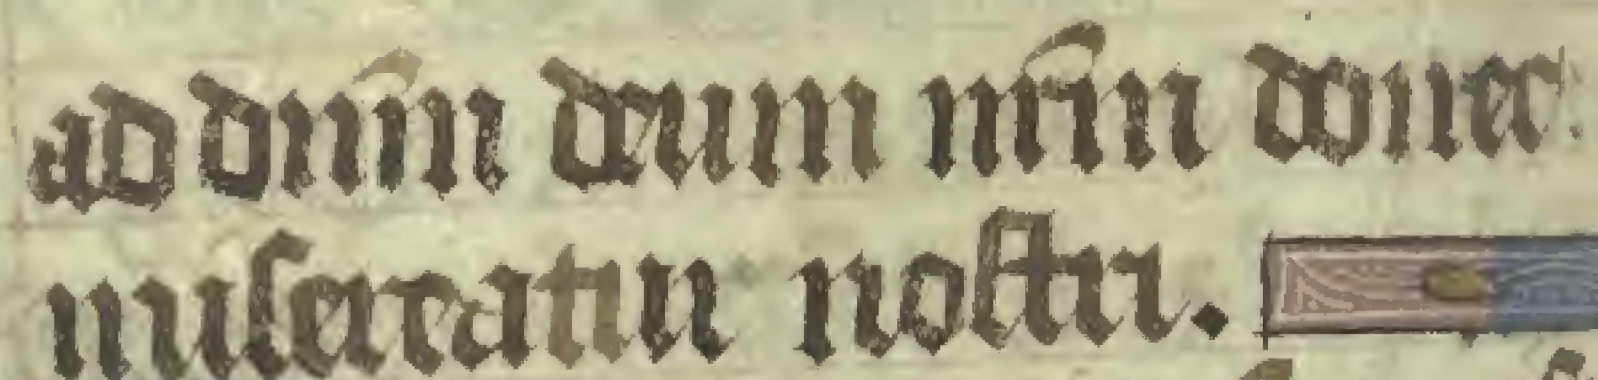 ad dn̄m deum nr̄m donec
misereatur nostri.